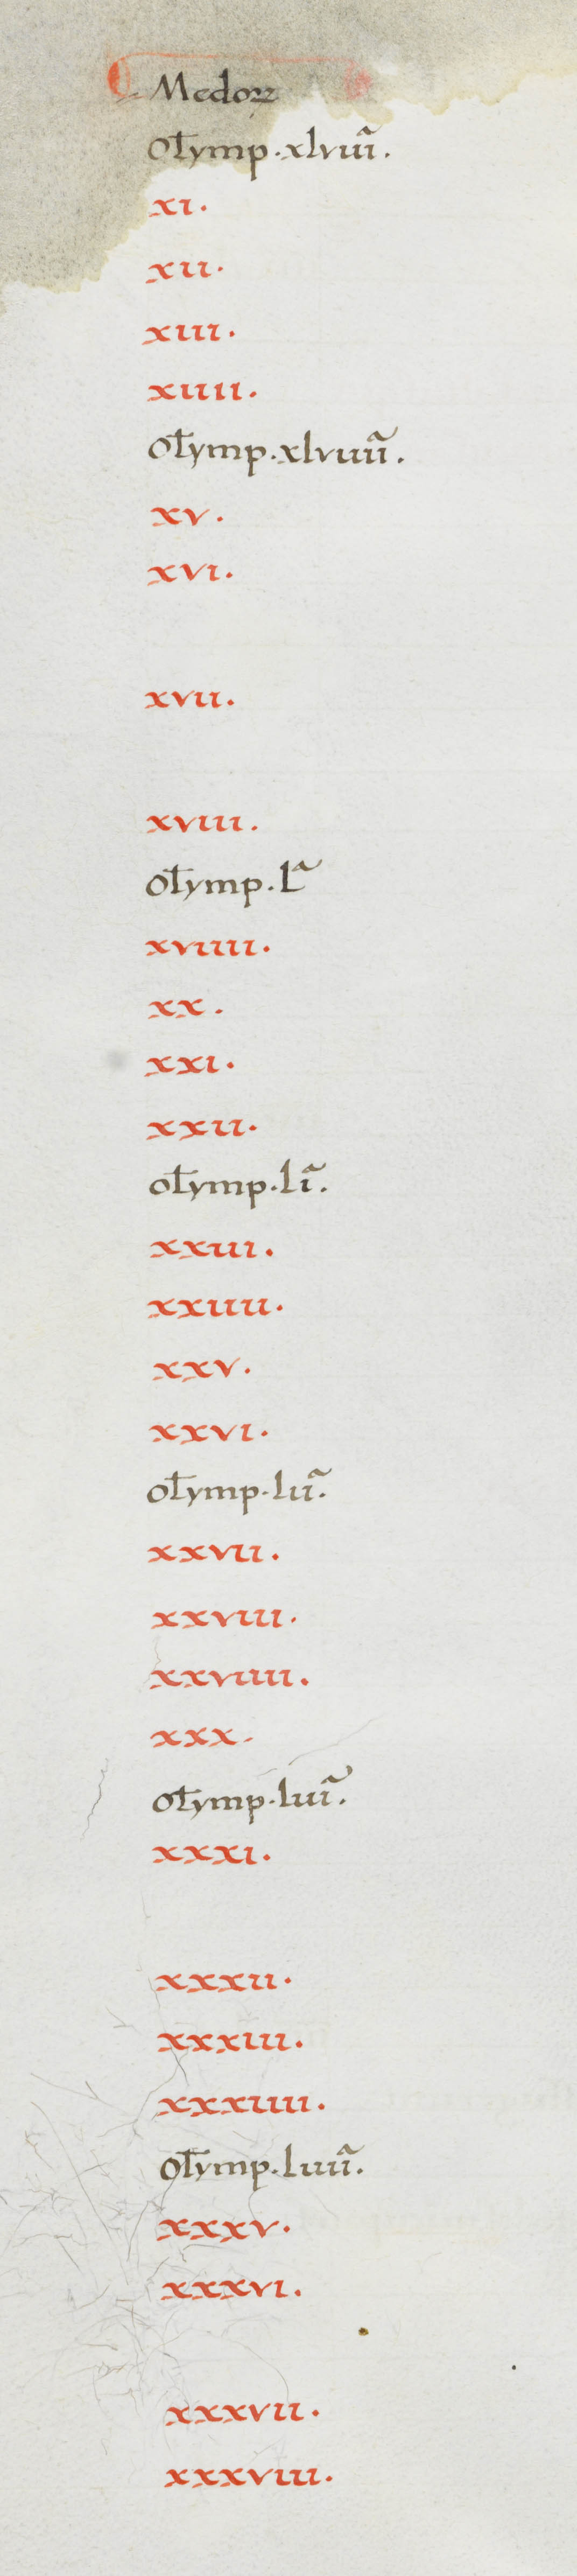 Medoꝝ
Oƚymp·xlviiiᵃ.
xi.
xii.
xiii.
xiiii.
Oƚymp·xlviiiiᵃ.
xv.
xvi.
xvii.
xviii.
Oƚymp·Lᵃ
xviiii.
xx.
xxi.
xxii.
oƚymp·liᵃ.
xxiii.
xxiiii.
xxv.
xxvi.
oƚymp·liiᵃ.
xxvii.
xxviii.
xxviiii.
xxx.
oƚymp·liiiᵃ.
xxxi.
xxxii.
xxxiii.
xxxiiii.
Oƚymp·liiiiᵃ.
xxxv.
xxxvi.
xxxvii.
xxxviii.